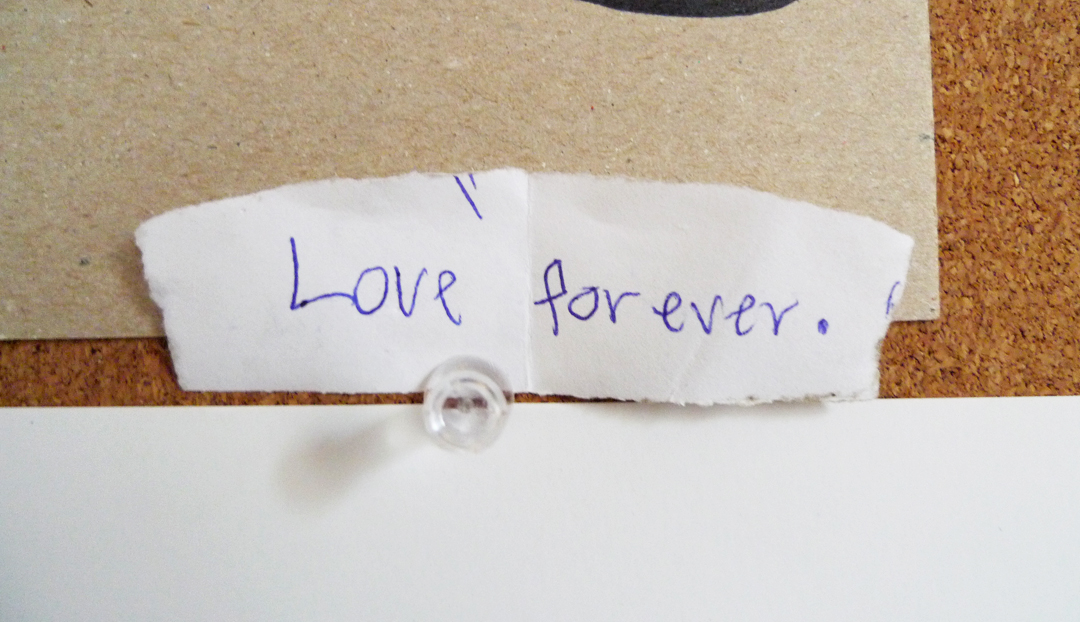 Love forever.